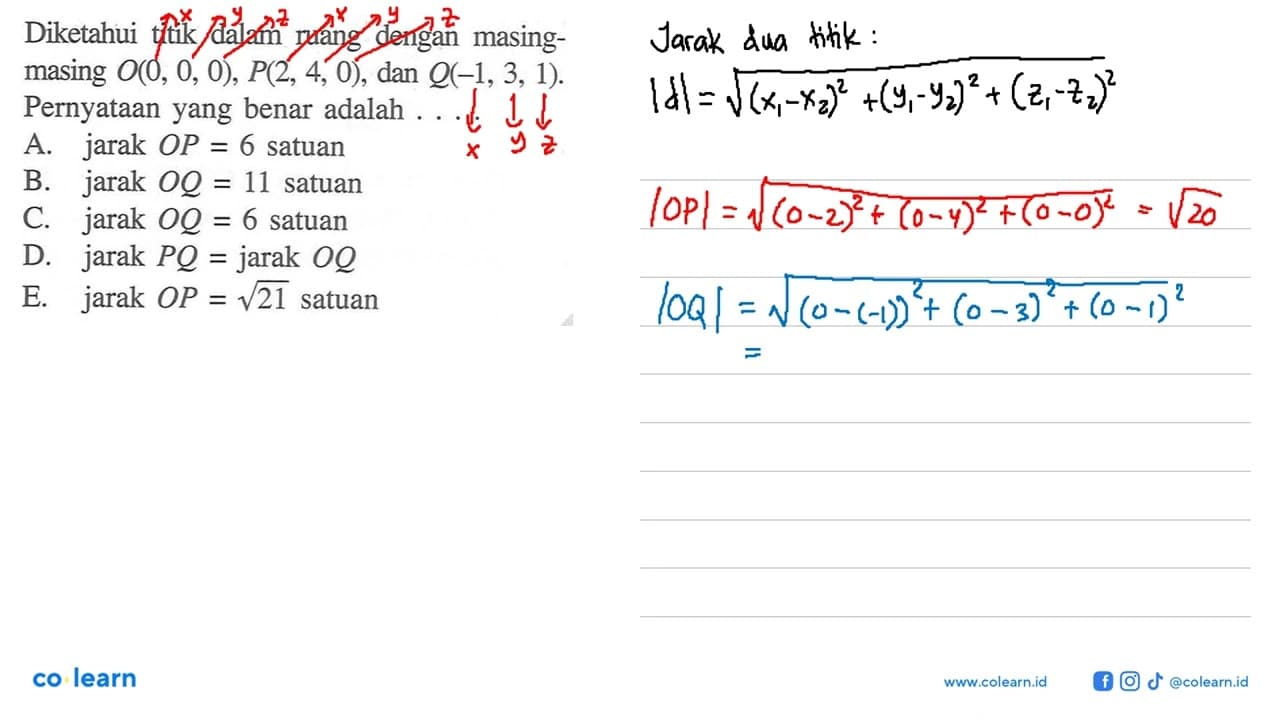 Diketahui titik dalam ruang dengan masing-
masing O(0, 0, 0), P(2, 4, 0), dan Q(–1, 3, 1).
Pernyataan yang benar adalah . . . .
A. jarak OP = 6 satuan
B. jarak OQ = 11 satuan
C. jarak OQ = 6 satuan
D. jarak PQ = jarak OQ
E. jarak OP = √21 satuan
x y z x y z
x y z
Jarak dua titik :
|d| = √(x₁-x₂)² + (y₁-y₂)² + (z₁-z₂)²
|OP| = √(0-2)² + (0-4)² + (0-0)² = √20
|OQ| = √(0-(-1))² + (0-3)² + (0-1)²
=
co learn
www.colearn.id
@colearn.id